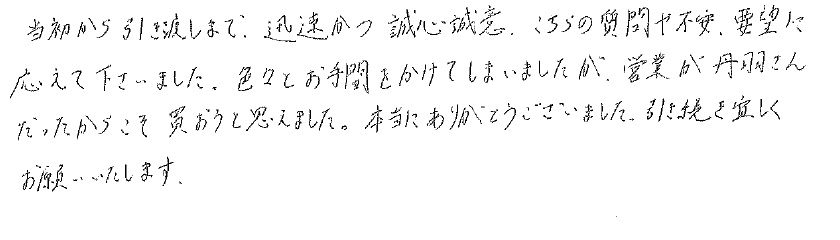 当初から引き渡しまで、迅速かつ誠心誠意、こちらの質問や不安、要望に
応えて下さいました。色々とお手間をかけてしまいましたが、営業が丹羽さん
だったからこそ買おうと思えました。本当にありがとうございました。引き続き宜しく
お願いいたします。